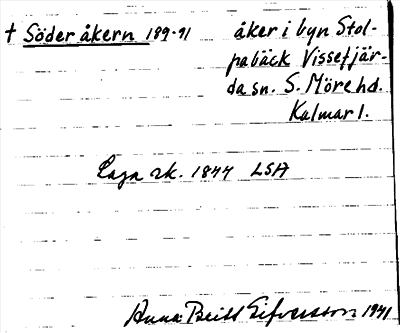 † Söder åkern 189·91 åker i byn Stol-
pabäck Vissefjär-
da sn. S. Möre hd.
Kalmar l.
Laga sk. 1844 LSA
Anna Britt Eifversson 1941